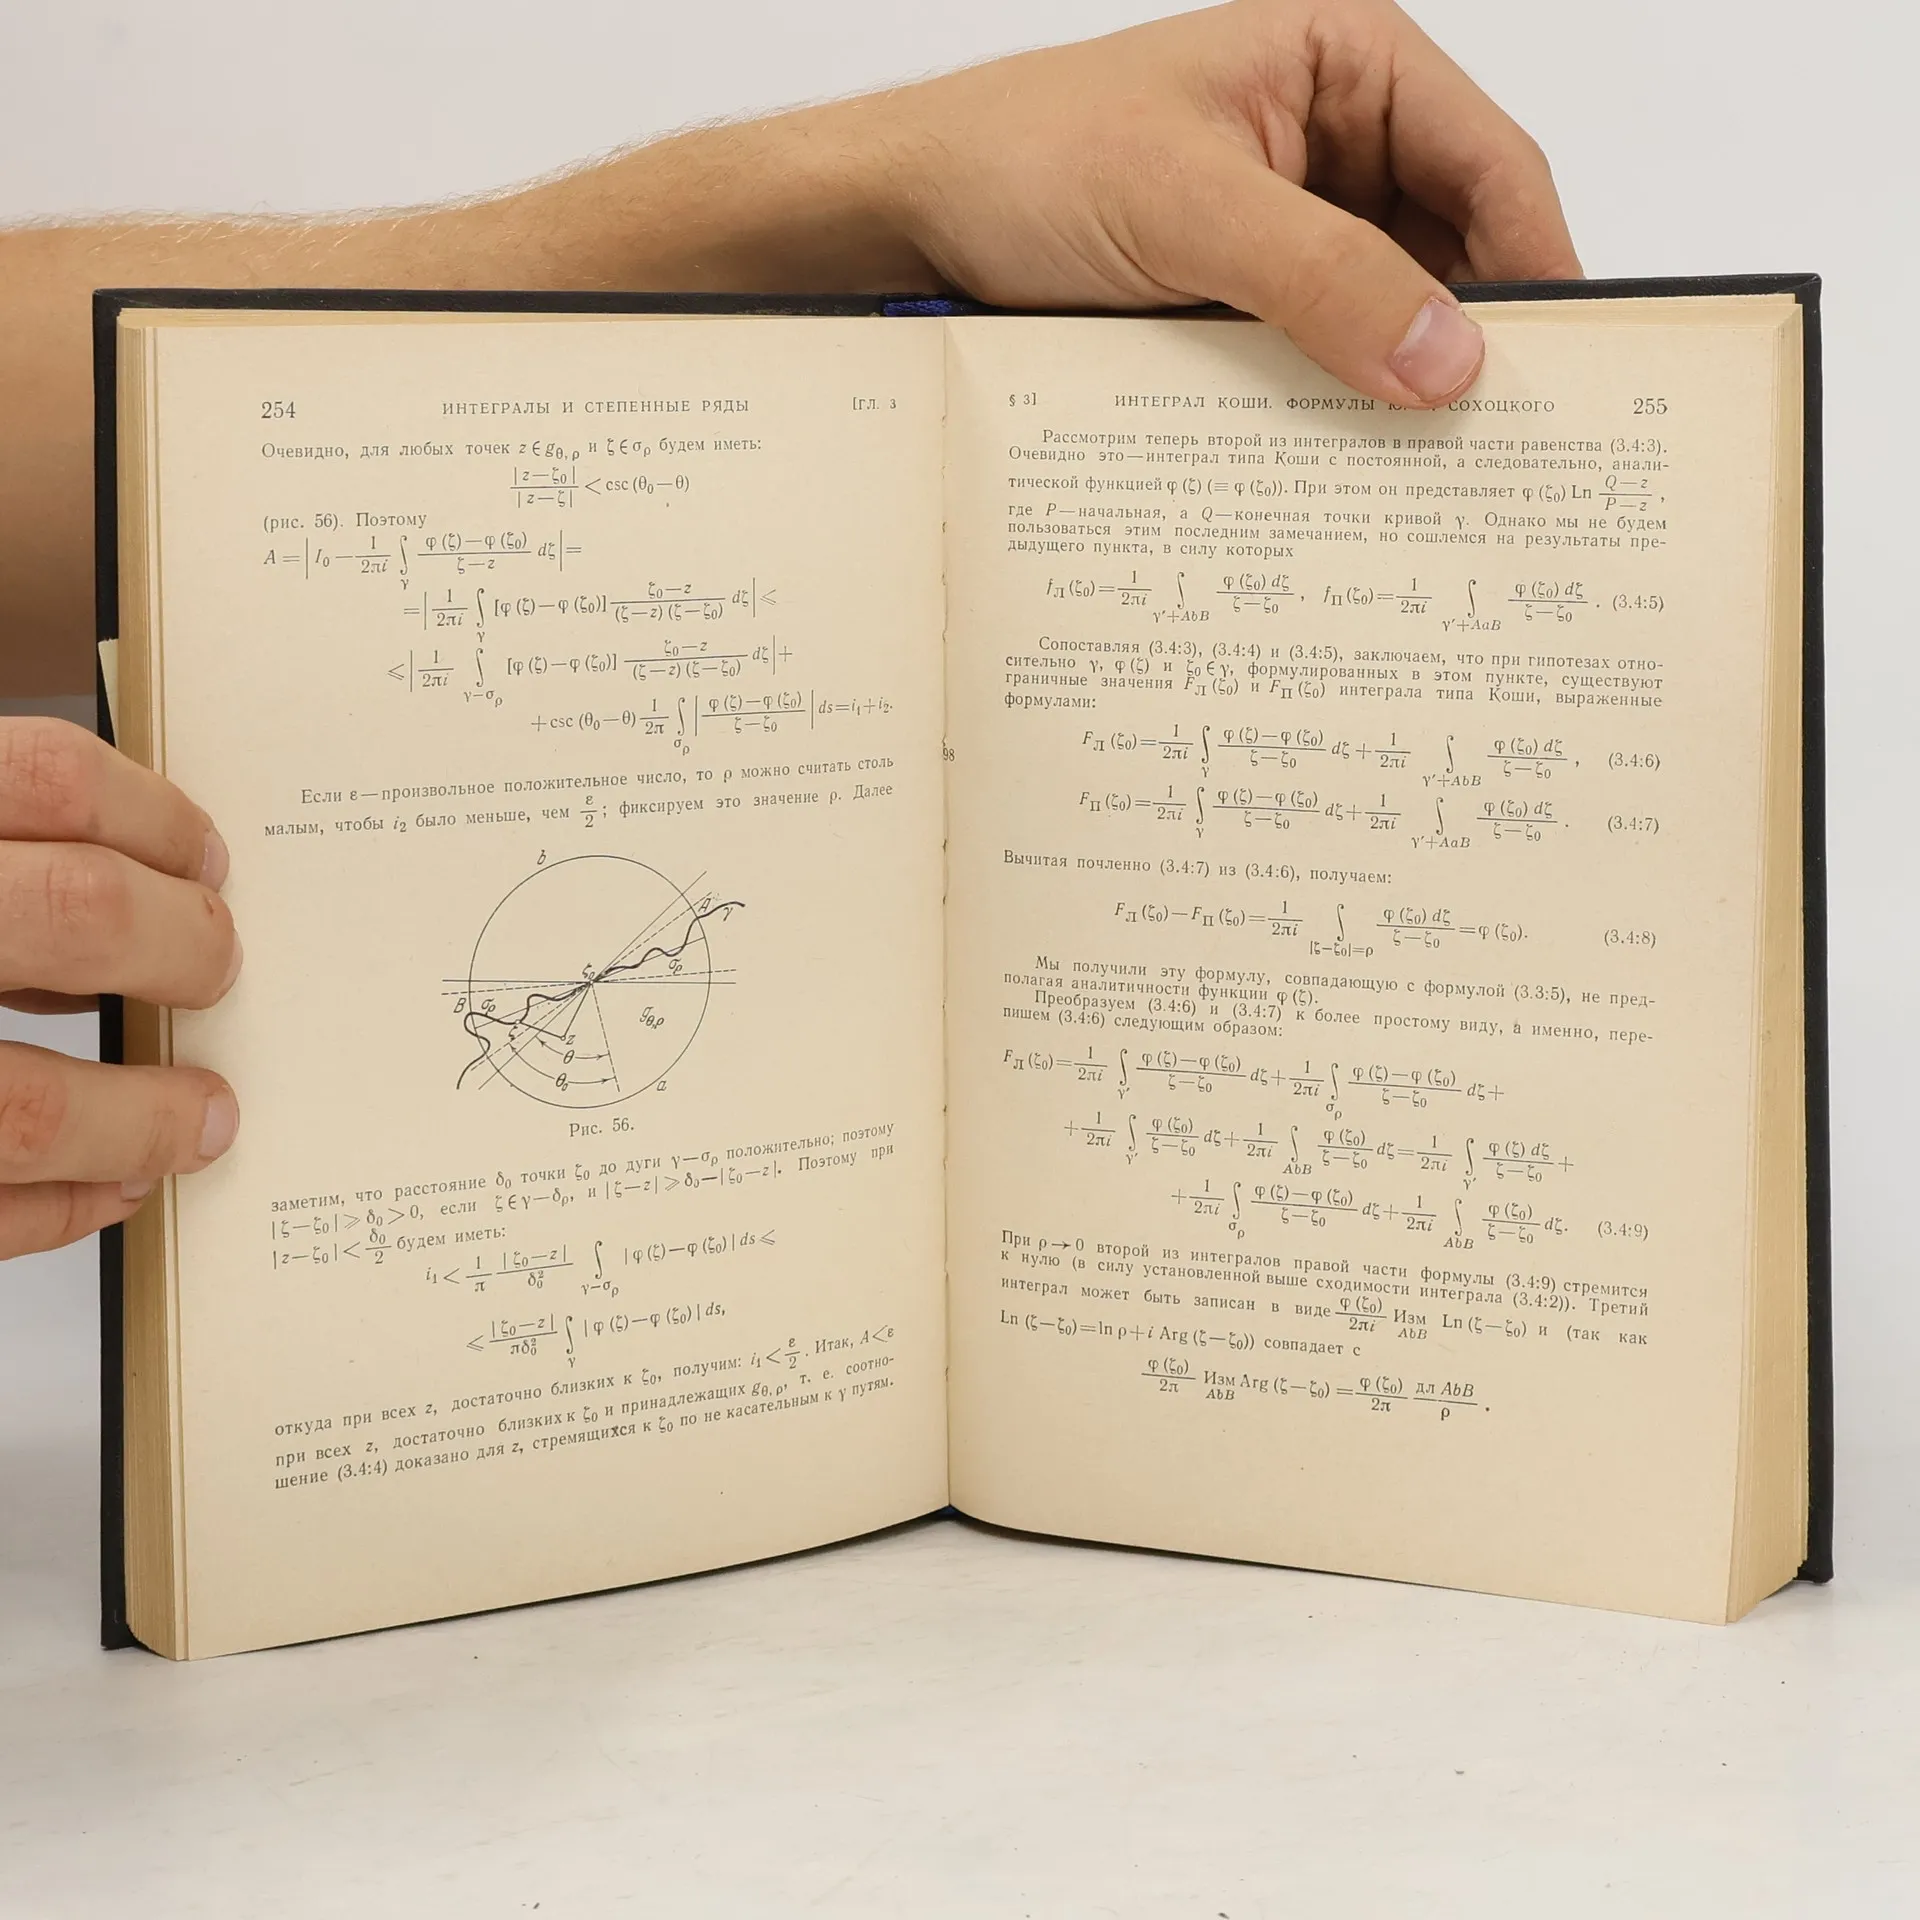 254 ИНТЕГРАЛЫ И СТЕПЕННЫЕ РЯДЫ [ГЛ. 3
Очевидно, для любых точек z ∈ g_{θ, ρ} и ζ ∈ σ_ρ будем иметь:
|z—ζ₀| / |z—ζ| < csc (θ₀—θ)
(рис. 56). Поэтому
A = | I₀ — 1/2πi ∫_γ (φ (ζ)—φ (ζ₀))/(ζ—z) dζ | =
= | 1/2πi ∫_γ [φ (ζ)—φ (ζ₀)] (ζ₀—z)/((ζ—z) (ζ—ζ₀)) dζ | ⩽
⩽ | 1/2πi ∫_{γ—σ_ρ} [φ (ζ)—φ (ζ₀)] (ζ₀—z)/((ζ—z) (ζ—ζ₀)) dζ | +
+ csc (θ₀—θ) 1/2π ∫_{σ_ρ} | (φ (ζ)—φ (ζ₀))/(ζ—ζ₀) | ds = i₁ + i₂.
Если ε — произвольное положительное число, то ρ можно считать столь
малым, чтобы i₂ было меньше, чем ε/2; фиксируем это значение ρ. Далее
b
A γ
ζ₀
σ_ρ
B σ_ρ
g_{θ,ρ}
ζ
z
θ
θ₀
a
Рис. 56.
заметим, что расстояние δ₀ точки ζ₀ до дуги γ—σ_ρ положительно; поэтому
|ζ—ζ₀| ⩾ δ₀ > 0, если ζ ∈ γ—δ_ρ, и |ζ—z| ⩾ δ₀—|ζ₀—z|. Поэтому при
|z—ζ₀| < δ₀/2 будем иметь:
i₁ < 1/π |ζ₀—z|/δ₀² ∫_{γ—σ_ρ} |φ (ζ)—φ (ζ₀)| ds ⩽
⩽ |ζ₀—z|/πδ₀² ∫_γ |φ (ζ)—φ (ζ₀)| ds,
откуда при всех z, достаточно близких к ζ₀, получим: i₁ < ε/2. Итак, A < ε
при всех z, достаточно близких к ζ₀ и принадлежащих g_{θ, ρ}, т. е. соотно-
шение (3.4:4) доказано для z, стремящихся к ζ₀ по не касательным к γ путям.
98
§ 3] ИНТЕГРАЛ КОШИ. ФОРМУЛЫ СОХОЦКОГО 255
Рассмотрим теперь второй из интегралов в правой части равенства (3.4:3).
Очевидно это — интеграл типа Коши с постоянной, а следовательно, анали-
тической функцией φ (ζ) (≡ φ (ζ₀)). При этом он представляет φ (ζ₀) Ln (Q—z)/(P—z),
где P — начальная, а Q — конечная точки кривой γ. Однако мы не будем
пользоваться этим последним замечанием, но сошлемся на результаты пре-
дыдущего пункта, в силу которых
f_Л (ζ₀) = 1/2πi ∫_{γ′+AbB} φ (ζ₀) dζ/(ζ—ζ₀), f_П (ζ₀) = 1/2πi ∫_{γ′+AaB} φ (ζ₀) dζ/(ζ—ζ₀). (3.4:5)
Сопоставляя (3.4:3), (3.4:4) и (3.4:5), заключаем, что при гипотезах отно-
сительно γ, φ (ζ) и ζ₀ ∈ γ, формулированных в этом пункте, существуют
граничные значения F_Л (ζ₀) и F_П (ζ₀) интеграла типа Коши, выраженные
формулами:
F_Л (ζ₀) = 1/2πi ∫_γ (φ (ζ)—φ (ζ₀))/(ζ—ζ₀) dζ + 1/2πi ∫_{γ′+AbB} φ (ζ₀) dζ/(ζ—ζ₀), (3.4:6)
F_П (ζ₀) = 1/2πi ∫_γ (φ (ζ)—φ (ζ₀))/(ζ—ζ₀) dζ + 1/2πi ∫_{γ′+AaB} φ (ζ₀) dζ/(ζ—ζ₀). (3.4:7)
Вычитая почленно (3.4:7) из (3.4:6), получаем:
F_Л (ζ₀) — F_П (ζ₀) = 1/2πi ∫_{|ζ—ζ₀|=ρ} φ (ζ₀) dζ/(ζ—ζ₀) = φ (ζ₀). (3.4:8)
Мы получили эту формулу, совпадающую с формулой (3.3:5), не пред-
полагая аналитичности функции φ (ζ).
Преобразуем (3.4:6) и (3.4:7) к более простому виду, а именно, пере-
пишем (3.4:6) следующим образом:
F_Л (ζ₀) = 1/2πi ∫_{γ′} (φ (ζ)—φ (ζ₀))/(ζ—ζ₀) dζ + 1/2πi ∫_{σ_ρ} (φ (ζ)—φ (ζ₀))/(ζ—ζ₀) dζ +
+ 1/2πi ∫_{γ′} φ (ζ₀)/(ζ—ζ₀) dζ + 1/2πi ∫_{AbB} φ (ζ₀)/(ζ—ζ₀) dζ = 1/2πi ∫_{γ′} φ (ζ) dζ/(ζ—ζ₀) +
+ 1/2πi ∫_{σ_ρ} (φ (ζ)—φ (ζ₀))/(ζ—ζ₀) dζ + 1/2πi ∫_{AbB} φ (ζ₀)/(ζ—ζ₀) dζ. (3.4:9)
При ρ → 0 второй из интегралов правой части формулы (3.4:9) стремится
к нулю (в силу установленной выше сходимости интеграла (3.4:2)). Третий
интеграл может быть записан в виде φ (ζ₀)/2πi Изм_{AbB} Ln (ζ—ζ₀) и (так как
Ln (ζ—ζ₀) = ln ρ + i Arg (ζ—ζ₀)) совпадает с
φ (ζ₀)/2π Изм_{AbB} Arg (ζ—ζ₀) = φ (ζ₀)/2π дл AbB/ρ.